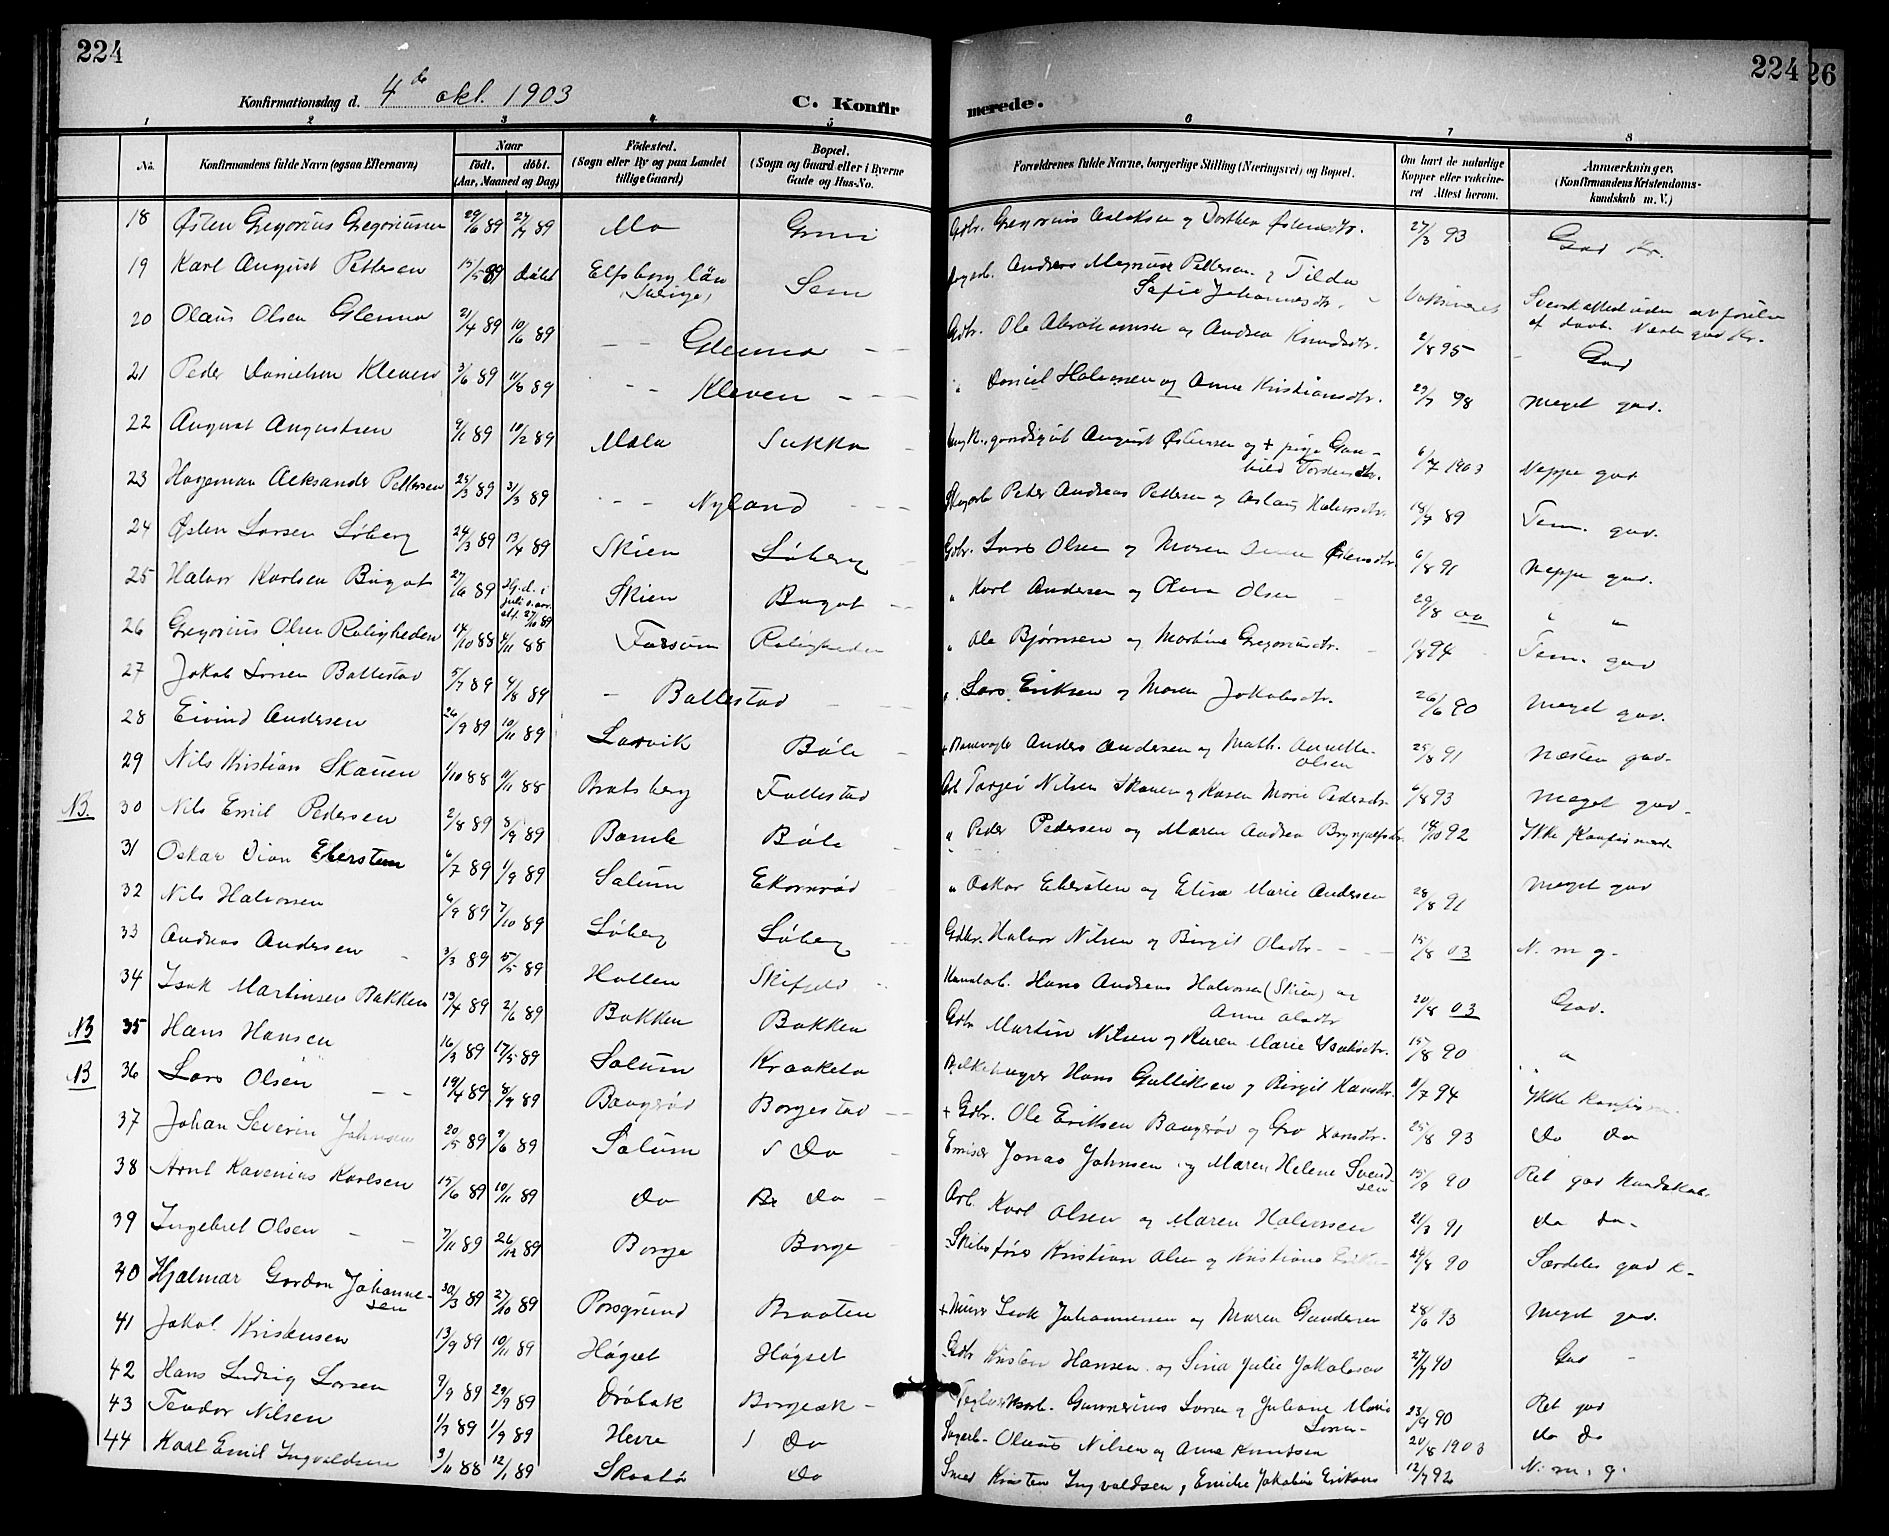 224
Konfirmationsdag d. 4de okt. 1903
C. Konfirmerede.
224 26
1 2 3 4 5 6 7 8
No. Konfirmandens fulde Navn (ogsaa Efternavn) Naar født. døbt. (Aar, Maaned og Dag) Fødested. (Sogn eller By og paa Landet tillige Gaard) Bopæl. (Sogn og Gaard eller i Byerne Gade og Hus-No. Forældrenes fulde Navne, borgerlige Stilling (Næringsvei) og Bopæl. Om havt de naturlige Kopper eller vaksineret. Attest herom. Anmærkninger. (Konfirmandens Kristendomskundskab m. V.)
18 Østen Gregorius Gregoriussen 29/6 89 27/7 89 Mo Grini Gbr. Gregorius Aslaksen og Dorthea Østensdtr. 27/3 93 God Kr.
19 Karl August Pettersen 15/5 89 døbt Elfsborg län (Sverige) Sem Andreas Magnus Pettersen og Tilda
Sofie Johannesdtr. Vaksineret Svensk attest uden
af daab. Næsten god Kr.
20 Olaus Olsen Glenna 21/4 89 10/6 89 - - Glenna - - Gbr. Ole Abrahamsen og Andrea Knudsdtr. 2/8 95 God
21 Peder Danielsen Kleven 3/6 89 11/8 89 - - Kleven - - - " Daniel Halvorsen og Anne Kristiansdtr. 29/7 98 Meget god.
22 August Augustsen 9/1 89 10/2 89 Mæla Sukka - August Østensen og + pige Gun-
hild Tordensdtr. 6/7 1903 Neppe god
23 Hagemann Aleksander Pettersen 25/3 89 31/3 89 - - Nyland - - - Peter Andreas Pettersen og Aslaug Halvorsdtr. 18/7 89 Tem. god.
24 Østen Larsen Løberg 24/3 89 13/4 89 Skien Løberg - Gbr. Lars Olsen og Maren Østensdtr. 6/8 91 Neppe god.
25 Halvor Karlsen Bugot 27/6 89 Hj.d. i juli s. aar 27/10 89 Skien Bugot - - " Karl Andersen og Olava Olsen - 29/8 00 " "
26 Gregorius Olsen Roligheden 14/10 88 4/11 88 Fossum Roligheden " Ole Bjørnsen og Martine Gregoriusdtr. - 1/8 94 Tem. god
27 Jakob Larsen Ballestad 5/7 89 4/8 89 - Ballestad - - " Lars Eriksen og Maren Jakobsdtr. 26/6 90 Meget god.
28 Eivind Andersen 26/9 89 10/11 89 Larvik Bøle - + Banevogter Anders Andersen og Math. Annette
Olsen 25/8 91 Næsten god.
29 Nils Kristian Skauen 1/10 88 9/11 88 Bratsberg Follestad Arb. Torgei Nilsen Skauen og Karen Marie Pedersdtr. 6/8 93 Meget god.
NB. 30 Nils Emil Pedersen 2/8 89 8/9 89 Bamle Bøle - " Peder Pedersen og Maren Andrea Brynjulfsdtr. 14/10 92 Ikke konfirmert
31 Oskar Dion Ebersten 6/7 89 1/9 89 Solum Ekornrød - " Oskar Ebersten og Elise Marie Andersen 28/8 91 Meget god
32 Nils Halvorsen 6/9 89 7/10 89 Løberg Løberg - Gdbr. Halvor Nilsen og Birgit Olsdtr. - - - 15/8 03 N. m g.
33 Andreas Andersen - 3/3 89 5/5 89 Hollen Skifjeld - Hans Andreas Halvorsen (Skien) og
Anne Olsdtr. 20/8 03 God.
34 Isak Martinsen Bakken 13/4 89 2/6 89 Bakken Bakken Gdbr Martin Nilsen og Karen Marie Isaksdtr. 15/8 90 "
NB 35 Hans Hansen 16/3 89 17/5 89 Solum Kraaketo Hans Gulliksen og Birgit Hansdtr. 1/7 94 Ikke konfirm.
NB 36 Lars Olsen - - 19/4 89 8/9 89 Baugerød Borgestad - - + Gdbr. Ole Eriksen Baugerød og Gro Hansdtr. 25/8 93 do do
37 Johan Severin Johnsen 20/5 89 9/6 89 Solum s Do - Jonas Johnsen og Maren Helene Svend-
sen 15/9 90 Ret god Kundskab.
38 Arnt Kavenius Karlsen 15/6 89 10/11 89 do Do - Arb. Karl Olsen og Maren Halvorsen 21/3 91 do do.
39 Ingebret Olsen - - 7/11 89 26/12 89 Borge Borge - Skibsfører Kristian Olsen og Kristiane 24/8 90 Særdeles god K.
40 Hjalmar Gordon Johanne-
sen 30/3 89 27/10 89 Porsgrund Braaten + Murer Isak Johannesen og Maren Gundersen 28/6 93 Meget god.
41 Jakob Kristensen 13/9 89 10/11 89 Høgset Høgset Gdbr Kristen Hansen og Sina Julie Jakobsen 27/7 90 God -
42 Hans Ludvig Larsen 9/9 89 29/9 89 Drøbak Borgeæk - Gunnerius Larsen og Juliane Marie
Larsen 23/9 90 Ret god
43 Teodor Nilsen 1/3 89 1/9 89 Herre s Do Sagarb. Olaus Nilsen og Anne Knudsen 20/8 1903 do do
44 Karl Emil Ingvaldsen 3/11 88 12/1 89 Skaatø Do Smed Kristen Ingvaldsen, Emilie Jakobine Eriksen 12/7 92 N. m. g.